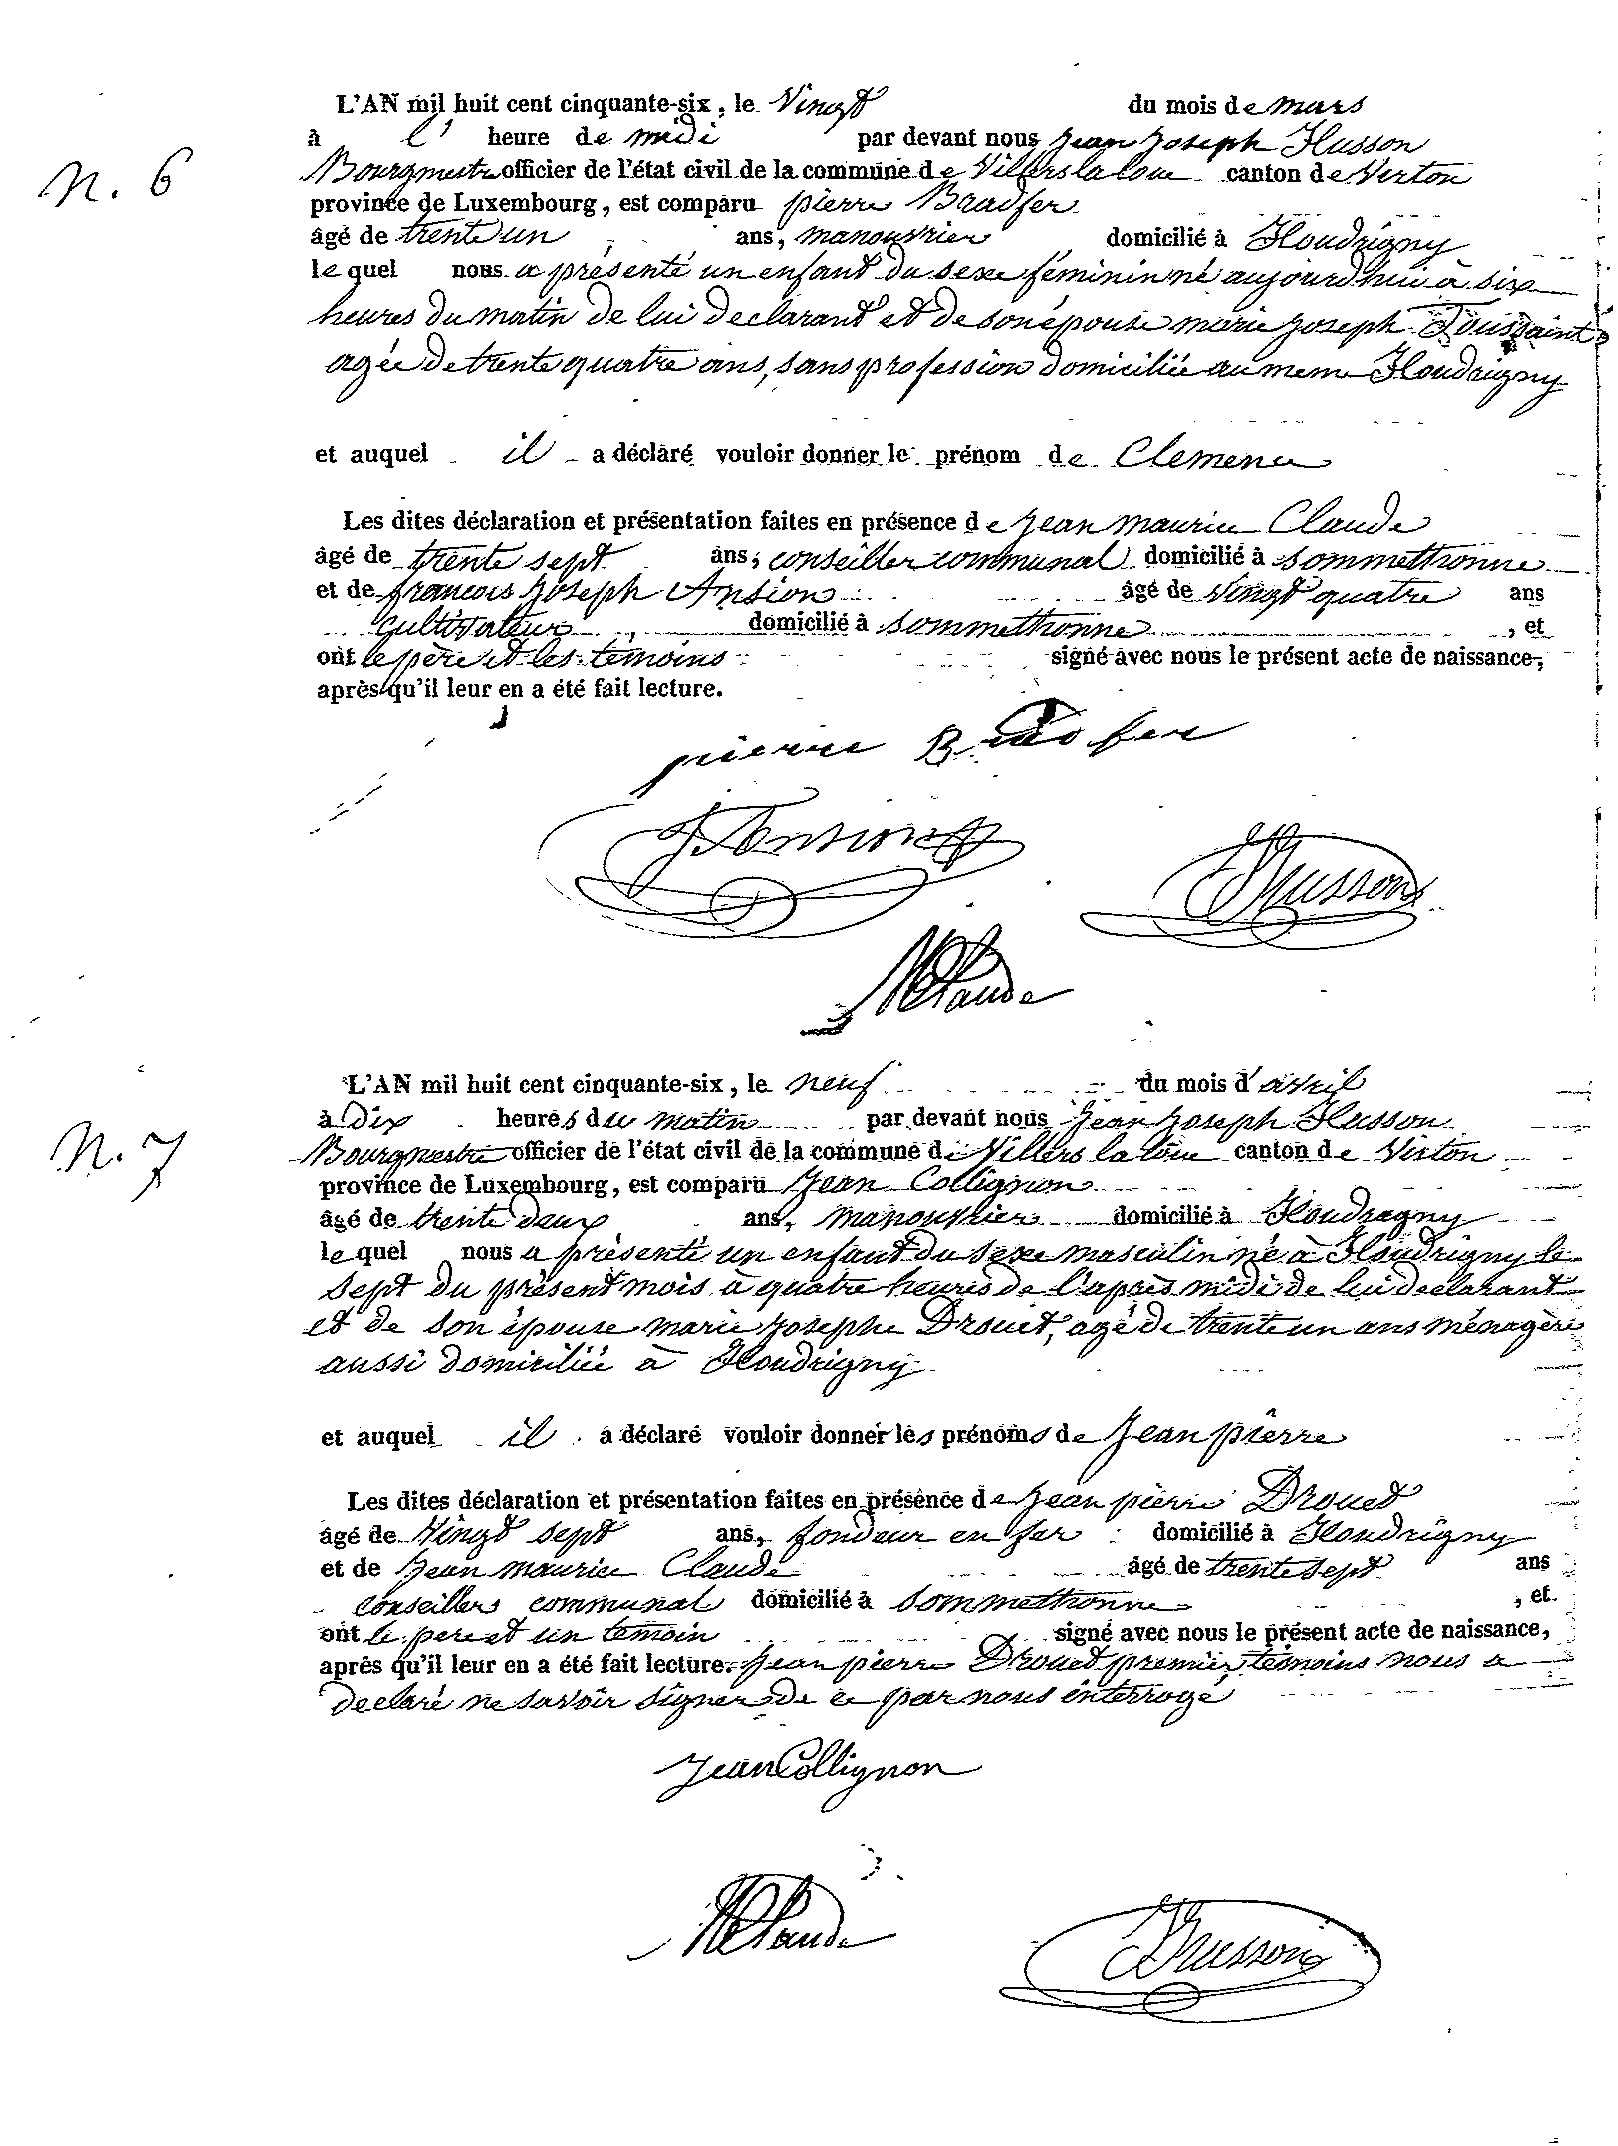 L'AN mil huit cent cinquante-six, le Vingt du mois de mars
à l' heure de midi par devant nous Jean Joseph Husson
N. 6
Bourgmestre officier de l'état civil de la commune de Villers la loue canton de Virton
province de Luxembourg, est comparu pierre Bradfer
âgé de trente un ans, manouvrier domicilié à Houdrigny
le quel nous a présenté un enfant du sexe féminin né aujourd'hui à six
heures du matin de lui declarant et de son épouse marie Joseph Toussaint
agée de trente quatre ans, sans profession domiciliée au meme Houdrigny
et auquel il a déclaré vouloir donner le prénom de Clemence
Les dites déclaration et présentation faites en présence de Jean maurice Claude
âgé de trente sept ans, conseiller communal domicilié à sommethonne
et de francois Joseph Ansion âgé de vingt quatre ans
Cultivateur domicilié à sommethonne, et
ont le père et les témoins signé avec nous le présent acte de naissance,
après qu'il leur en a été fait lecture.
pierre Bradfer
J Ansion
JHusson
MClaude
L'AN mil huit cent cinquante-six, le neuf du mois d'avril
à Dix heures du matin par devant nous Jean Joseph Husson
N. 7
Bourgmestre officier de l'état civil de la commune de Villers la loue canton de Virton
province de Luxembourg, est comparu Jean Collignon
âgé de trente deux ans, manouvrier domicilié à Houdrigny
le quel nous a présenté un enfant du sexe masculin né à Houdrigny le
sept du présent mois à quatre heures de l'après midi de lui declarant
et de son épouse marie Josephe Drouet, agé de trente un ans ménagère
aussi domiciliée à Houdrigny
et auquel il a déclaré vouloir donner les prénoms de Jean pierre
Les dites déclaration et présentation faites en présence de Jean pierre Drouet
âgé de Vingt sept ans, fondeur en fer domicilié à Houdrigny
et de Jean maurice Claude âgé de trente sept ans
conseiller communal domicilié à sommethonne, et
ont le pere et un temoin signé avec nous le présent acte de naissance,
après qu'il leur en a été fait lecture. Jean pierre Drouet premier témoins nous a
declaré ne savoir signer de ce par nous interrogé
Jean Collignon
MClaude
JHusson